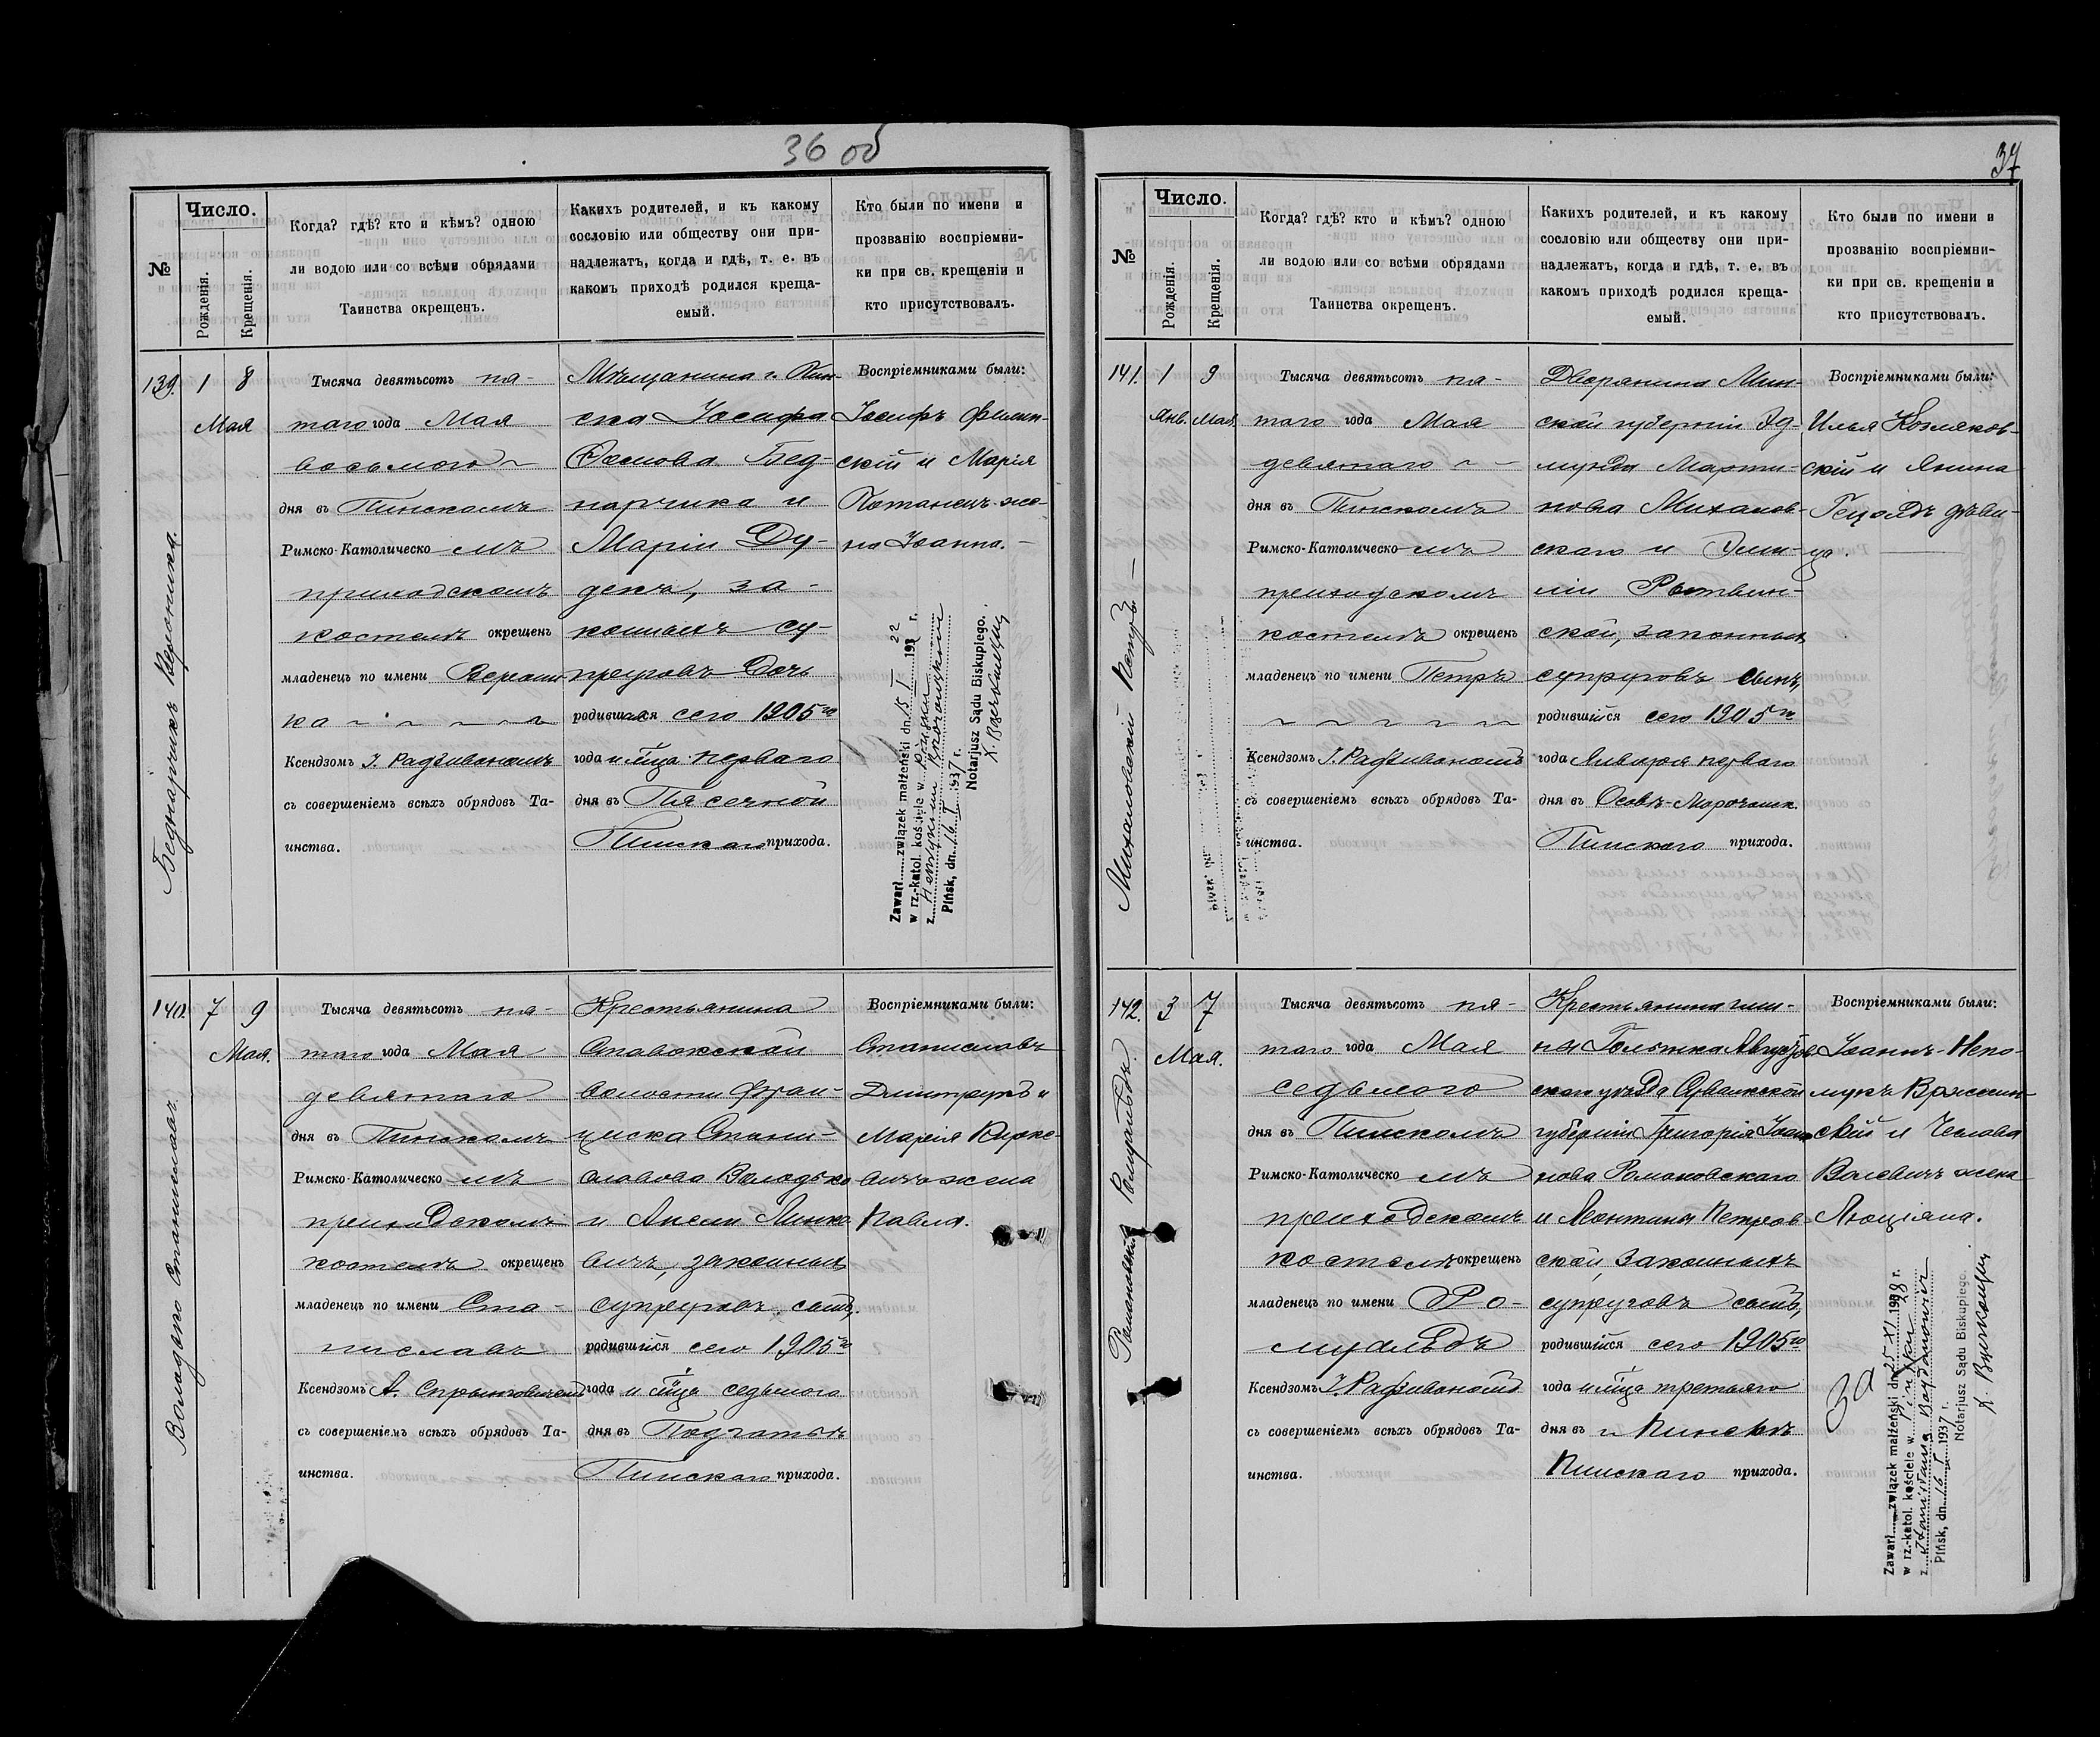 36 об
№
Число.
Рожденія.
Крещенія.
Когда? гдѣ? кто и кѣмъ? одною
ли водою или со всѣми обрядами
Таинства окрещенъ.
Какихъ родителей, и къ какому
сословію или обществу они при-
надлежатъ, когда и гдѣ, т. е. въ
какомъ приходѣ родился креща-
емый.
Кто были по имени и
прозванію воспріемни-
ки при св. крещеніи и
кто присутствовалъ.
139.
1 8
Мая
Беднарчикъ Вероника.
Тысяча девятьсотъ пя-
таго года Мая
восьмого
дня въ Пинскомъ
Римско-Католическо мъ
приходскомъ
костелѣ окрещенъ
младенецъ по имени Верони-
ка
Ксендзомъ І. Радзивономъ
съ совершеніемъ всѣхъ обрядовъ Та-
инства.
Мѣщанина г. Пин-
ска Іосифа
Осипова Бед-
нарчика и
Маріи Ду-
декъ, за-
конныхъ су-
пруговъ дочь
родившаяся сего 1905го
года и м̃ца перваго
дня въ Пясечной
Пинскаго прихода.
Воспріемниками были:
Іосифъ Филин-
скій и Марія
Котанецъ же-
на Іоанна.
Zawarł związek małżeński dn. 15 I 1922 r.
w rz.-katol. kościele w Pińsku
z
Pińsk, dn. 16 I 1937 r.
Notarjusz Sądu Biskupiego.
140.
7 9
Мая.
Володько Станиславъ.
Тысяча девятьсотъ пя-
таго года Мая
девятаго
дня въ Пинскомъ
Римско-Католическо мъ
приходскомъ
костелѣ окрещенъ
младенецъ по имени Ста-
ниславъ
Ксендзомъ А.
съ совершеніемъ всѣхъ обрядовъ Та-
инства.
Крестьянина
Ставокской
волости Фран-
циска Стани-
славова Володько
и Анели Линке-
вичъ, законныхъ
супруговъ, сынъ,
родившійся сего 1905го
года и м̃ца седьмого
дня въ Подгатьѣ
Пинскаго прихода.
Воспріемниками были:
Станиславъ
Дмитрукъ и
Марія
жена
Павла.
37
№
Число.
Рожденія.
Крещенія.
Когда? гдѣ? кто и кѣмъ? одною
ли водою или со всѣми обрядами
Таинства окрещенъ.
Какихъ родителей, и къ какому
сословію или обществу они при-
надлежатъ, когда и гдѣ, т. е. въ
какомъ приходѣ родился креща-
емый.
Кто были по имени и
прозванію воспріемни-
ки при св. крещеніи и
кто присутствовалъ.
141.
1 9
Янв. Мая
Михаловскій Петръ
Тысяча девятьсотъ пя-
таго года Мая
девятаго
дня въ Пинскомъ
Римско-Католическо мъ
приходскомъ
костелѣ окрещенъ
младенецъ по имени Петръ
Ксендзомъ І. Радзивономъ
съ совершеніемъ всѣхъ обрядовъ Та-
инства.
Дворянина Мин-
ской губерніи Эд-
мунда Марти-
нова Михалов-
скаго и Эми-
ліи
ской, законныхъ
супруговъ сынъ,
родившійся сего 1905го
года Января перваго
дня въ
Пинскаго прихода.
Воспріемниками были:
Илья Козляков-
скій и Янина
Гецольдъ дѣви-
ца.
142.
3 7
Мая.
Романовскій Ромуальдъ.
Тысяча девятьсотъ пя-
таго года Мая
седьмого
дня въ Пинскомъ
Римско-Католическо мъ
приходскомъ
костелѣ окрещенъ
младенецъ по имени Ро-
муальдъ
Ксендзомъ І. Радзивономъ
съ совершеніемъ всѣхъ обрядовъ Та-
инства.
Крестьянина гми-
ны Голынка Августов-
скаго уѣзда Сувалкской
губерніи Григорія Іоан-
нова Романовскаго
и Леонтины Петров-
ской, законныхъ
супруговъ сынъ,
родившійся сего 1905го
года и м̃ца третьяго
дня въ г. Пинскѣ
Пинскаго прихода.
Воспріемниками были:
Іоаннъ-Непо-
мукъ
скій и Чеслава
Волевичъ жена
Люціяна.
За
Zawarł związek małżeński dn. 25 XI 1928 r.
w rz.-katol. kościele w Pińsku
z Bogdanowicz
Pińsk, dn. 16 I 1937 r.
Notarjusz Sądu Biskupiego.